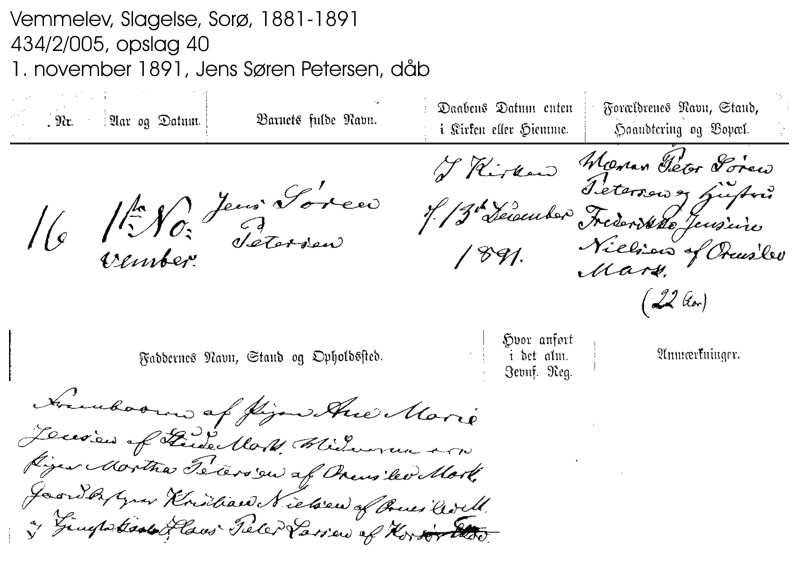 Vemmelev, Slagelse, Sorø, 1881-1891
434/2/005, opslag 40
1. november 1891, Jens Søren Petersen, dåb
Nr.
Aar og Datum.
Barnets fulde Navn.
Daabens Datum enten
i Kirken eller Hjemme.
Forældrenes Navn, Stand,
Haandtering og Bopæl.
16
1ste No-
vember.
Jens Søren
Petersen
I Kirken
d. 13de December
1891.
Peter Søren
Petersen og Hustru
Frederikke Jensine
Nielsen af Ormslev
Mark.
(22 Aar)
Faddernes Navn, Stand og Opholdssted.
Hvor anført
i det alm.
Jevnf. Reg.
Anmærkninger.
Frembaaren af Pigen Ane Marie
Jensen af Stude Mark.
Pigen Martha Petersen af Ormslev Mark.
Gaardbestyrer Kristian Nielsen af Ormslev M.
Peter Larsen af Korsør